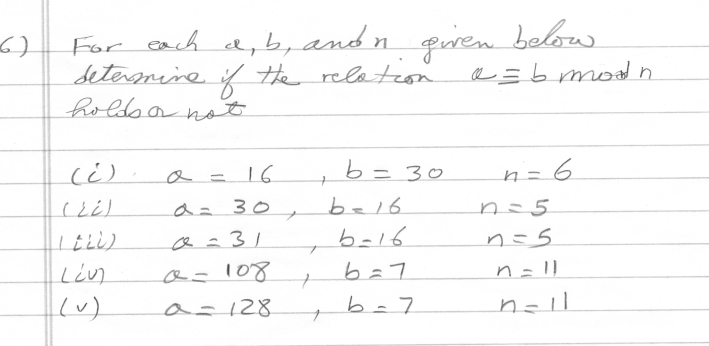 6) For each a, b, and n given below
determine if the relation a ≡ b mod n
holds or not
(i) a = 16 , b = 30 n = 6
(ii) a = 30 , b = 16 n = 5
(iii) a = 31 , b = 16 n = 5
(iv) a = 108 , b = 7 n = 11
(v) a = 128 , b = 7 n = 11